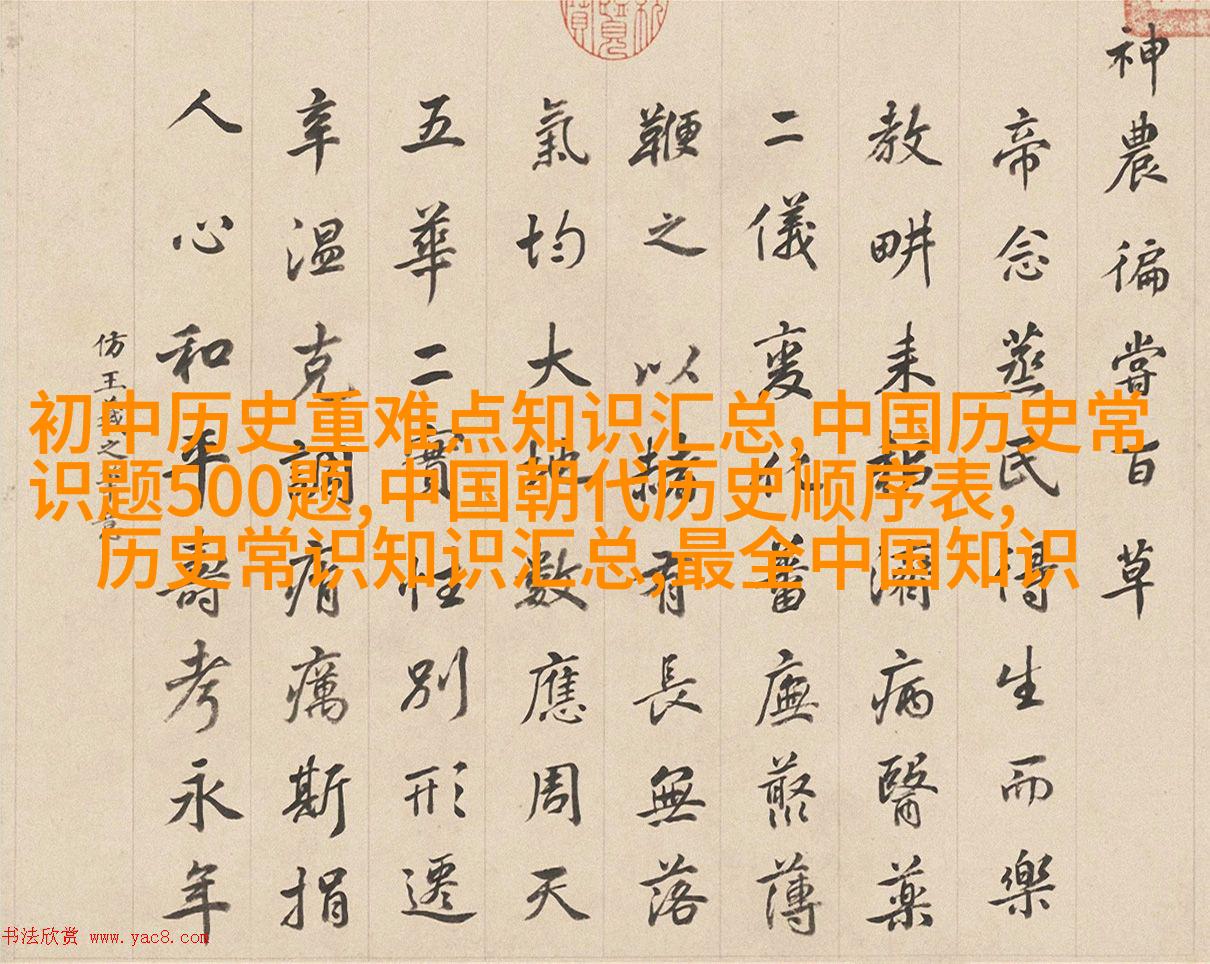 神農徧嘗百草
帝念蒸民得生而樂
教畊耒耜濟病醫藥
二儀變化蕃廡藂薄
鞭之以赭有長無落
氣均大地數應周天
五華二實性別形遷
辛温克調痟癘斯捐
人心和平壽考永年
仿王羲之
初中历史重难点知识汇总,中国历史常
识题500题,中国朝代历史顺序表,
历史常识知识汇总,最全中国知识
书法欣赏 www.yac8.com